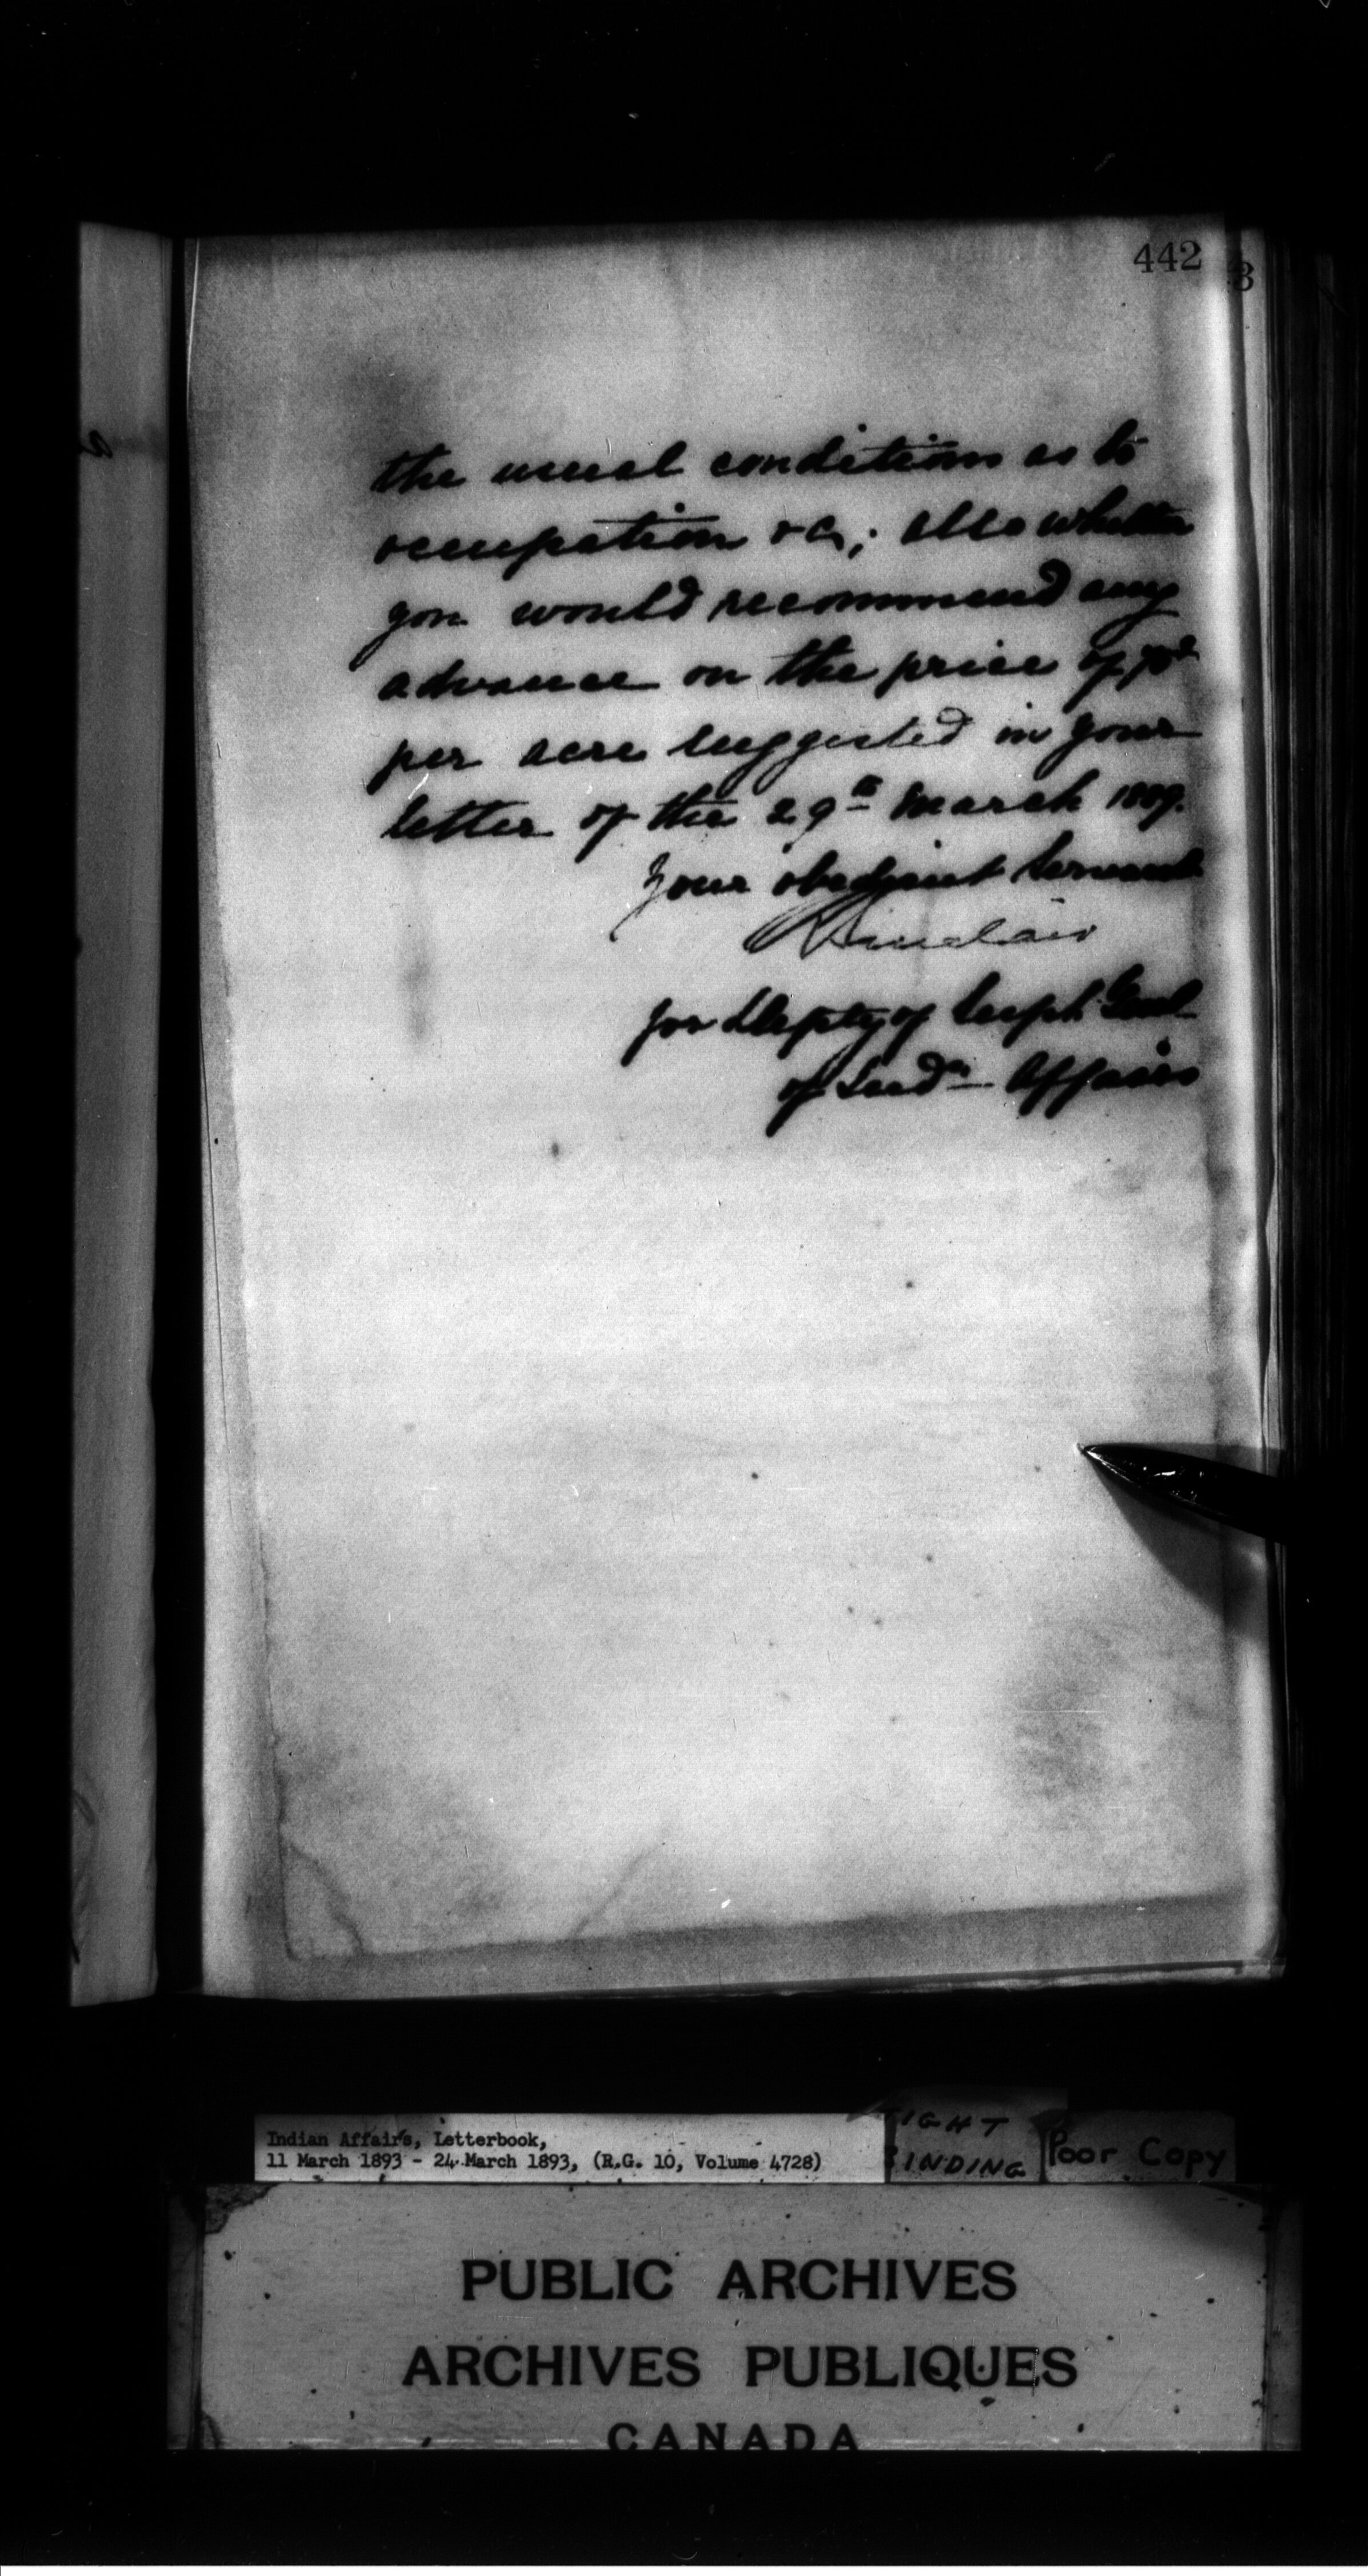 442
3
the usual conditions as to
occupation &c; also whether
you would recommend any
advance on the price of
per acre suggested in your
letter of the 29th March 1889.
Your obedient Servant
Sinclair
for Deputy of Supt. Genl
of Indn Affairs
Indian Affairs, Letterbook,
11 March 1893 - 24 March 1893, (R.G. 10, Volume 4728)
IGHT
INDING
Poor Copy
PUBLIC ARCHIVES
ARCHIVES PUBLIQUES
CANADA